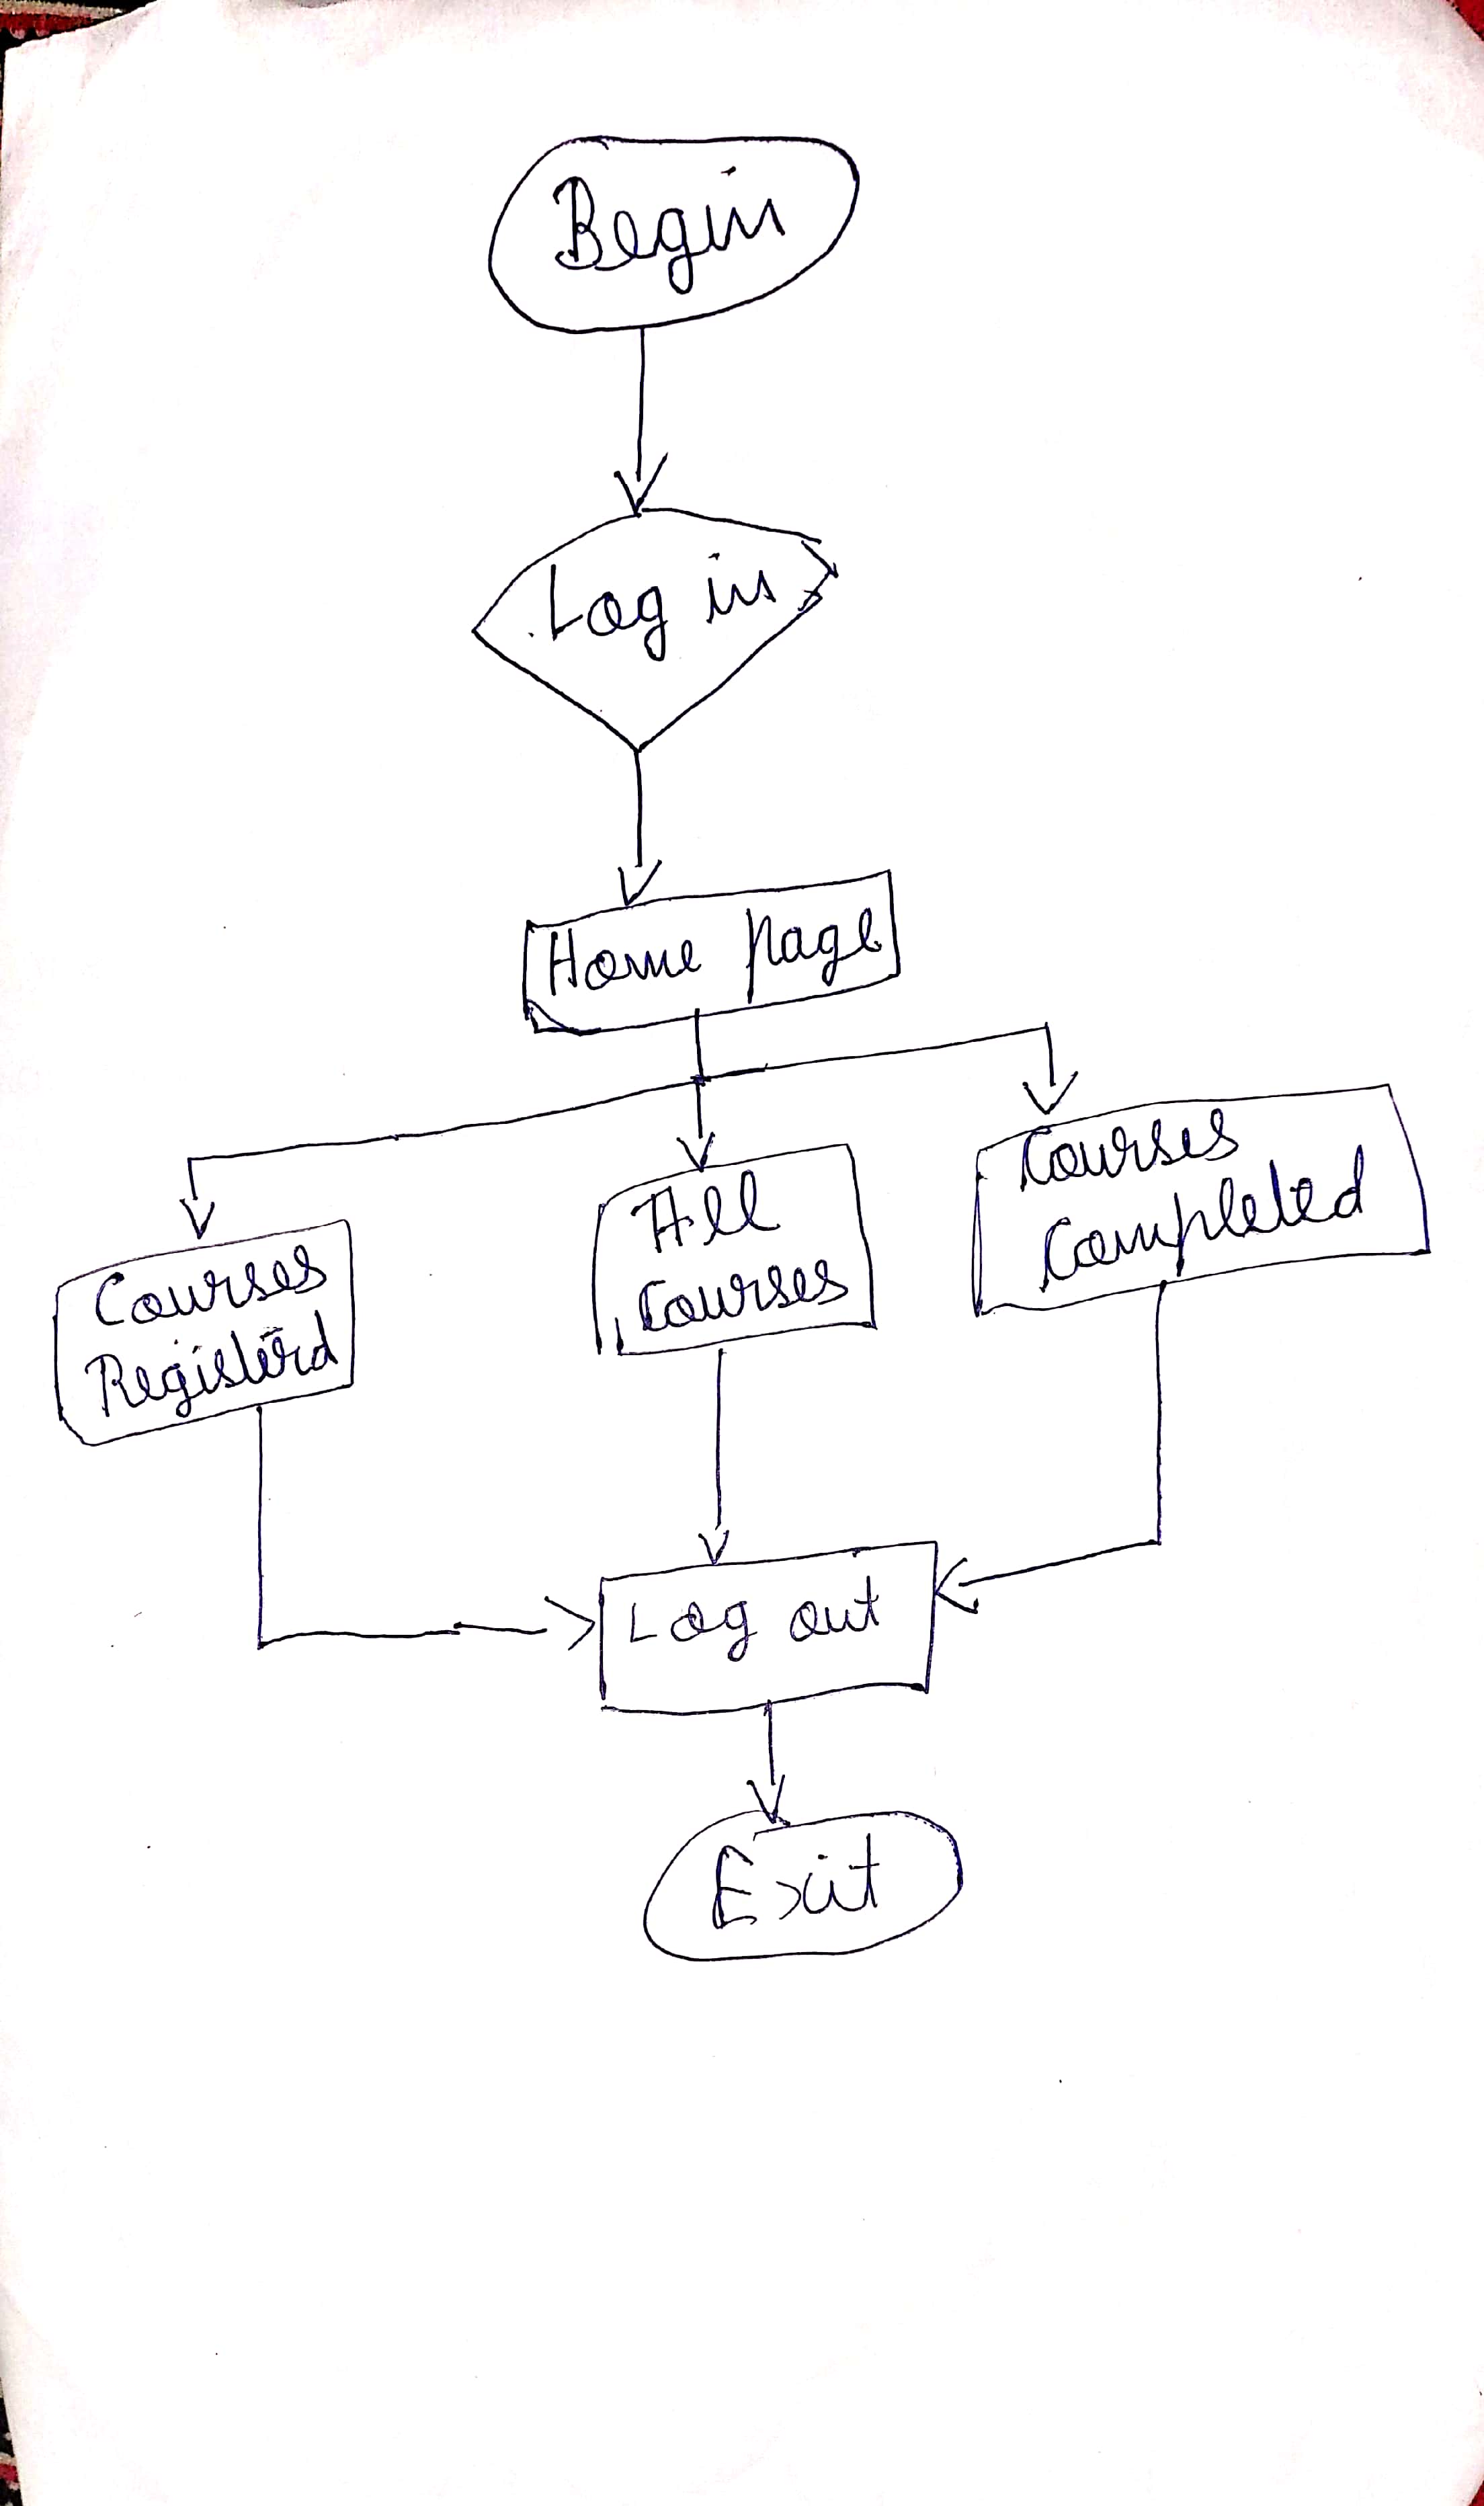 Begin
Log in
Home page
Courses
Registerd
All
Courses
Courses
Completed
Log out
Exit